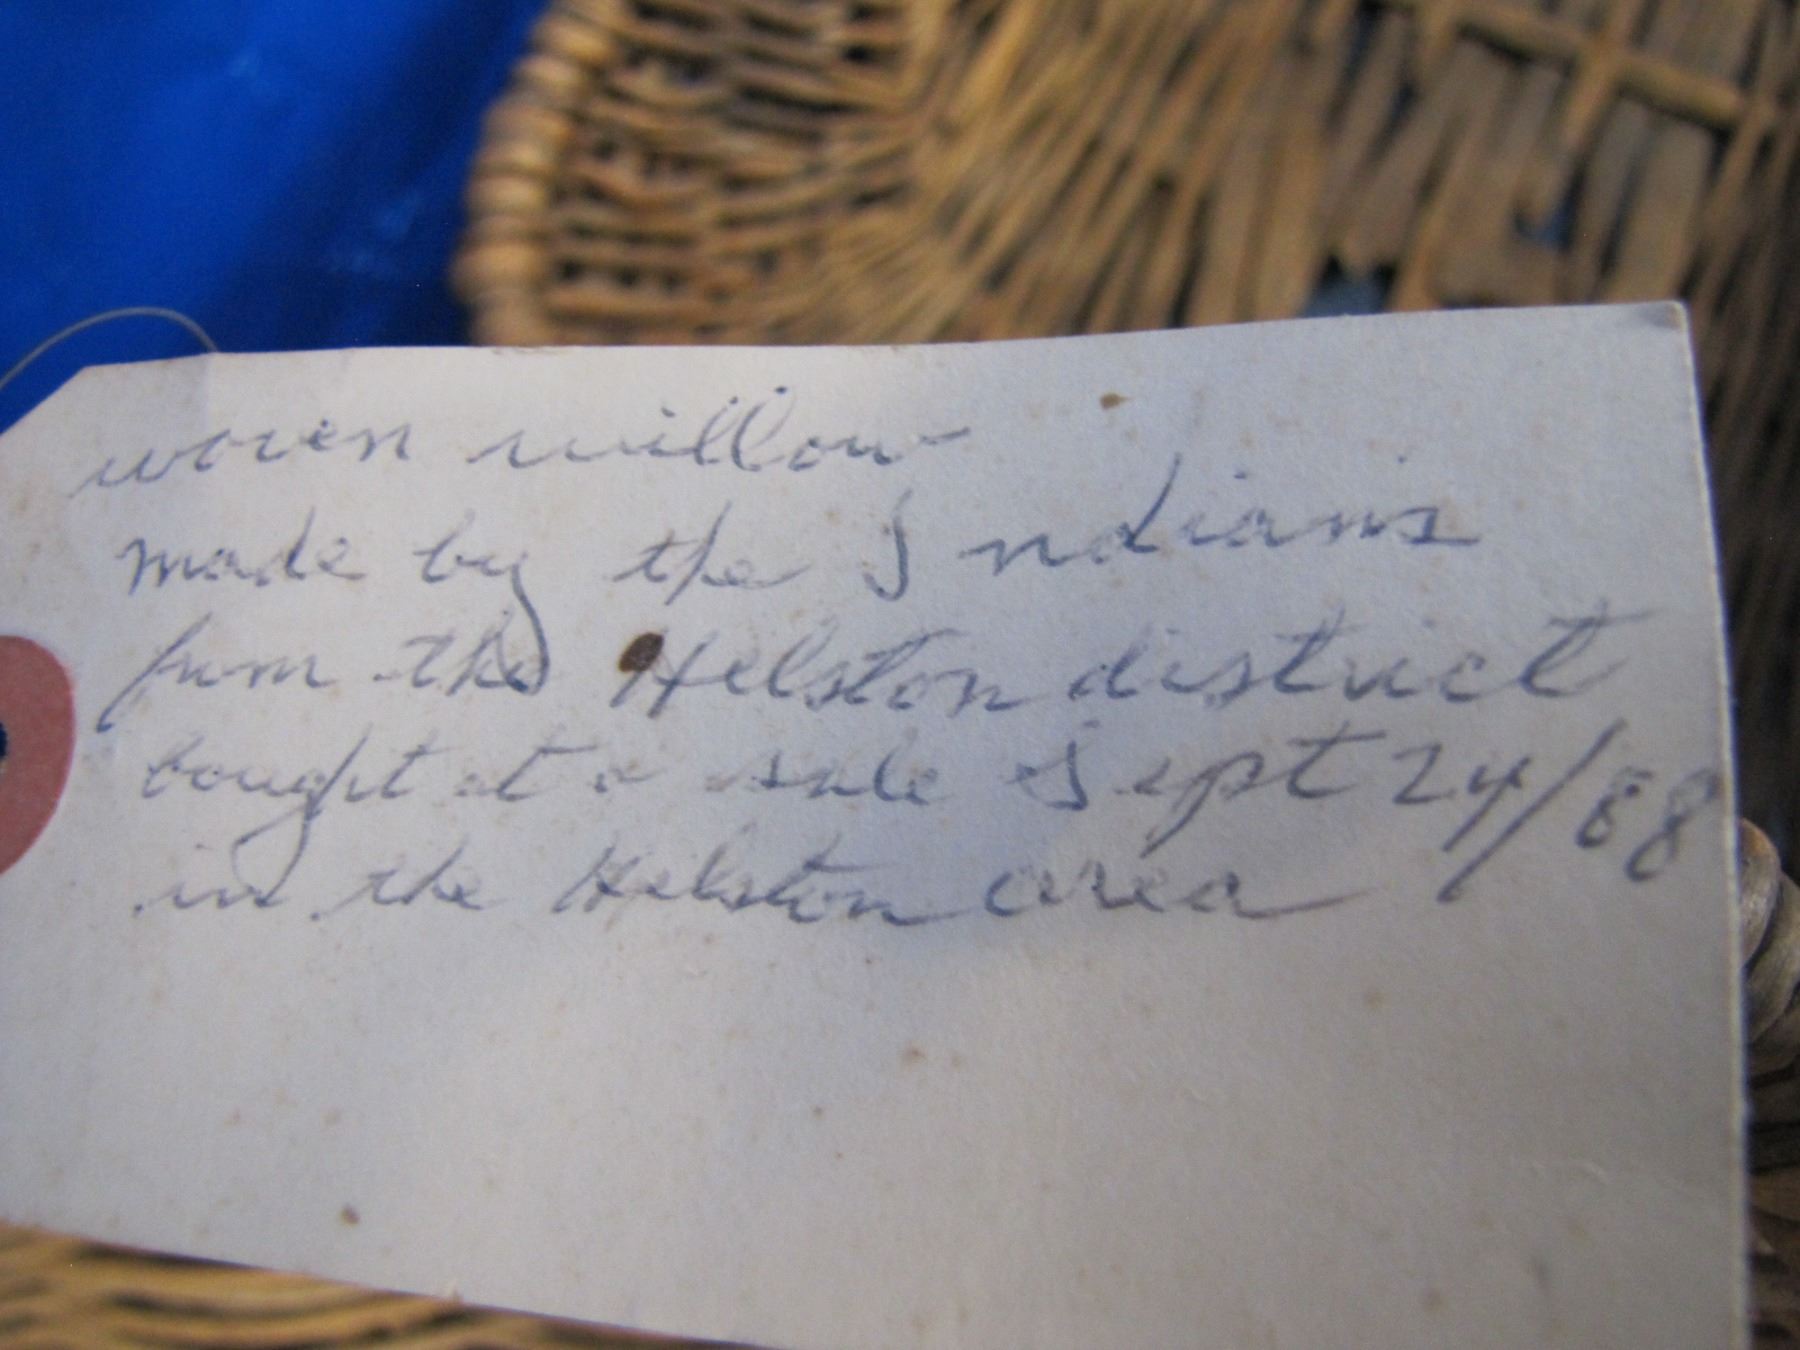 woven willow
made by the Indians
from the Helston district
bought at a sale Sept 24/88
in the Helston area